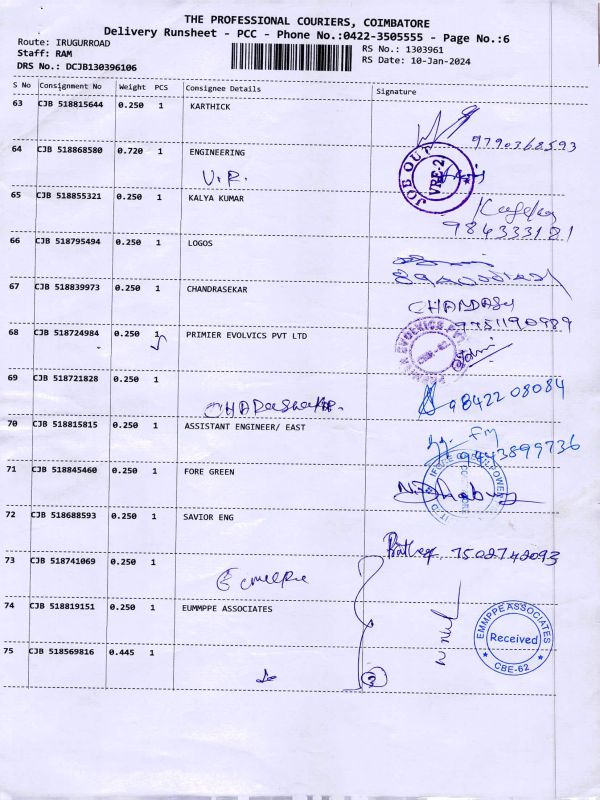 THE PROFESSIONAL COURIERS, COIMBATORE
Delivery Runsheet - PCC - Phone No.:0422-3505555 - Page No.:6
Route: IRUGURROAD
RS No.: 1303961
Staff: RAM
RS Date: 10-Jan-2024
DRS No.: DCJB130396106
S No Consignment No Weight PCS Consignee Details Signature
63 CJB 518815644 0.250 1 KARTHICK
9790268593
64 CJB 518868580 0.720 1 ENGINEERING
V.P.
JOB OUT
VRE-2
65 CJB 518855321 0.250 1 KALYA KUMAR
984333121
66 CJB 518795494 0.250 1 LOGOS
67 CJB 518839973 0.250 1 CHANDRASEKAR
9751190989
68 CJB 518724984 0.250 1 PRIMIER EVOLVICS PVT LTD
69 CJB 518721828 0.250 1
9842208084
70 CJB 518815815 0.250 1 ASSISTANT ENGINEER/ EAST
9443899736
71 CJB 518845460 0.250 1 FORE GREEN
72 CJB 518688593 0.250 1 SAVIOR ENG
7502742093
73 CJB 518741069 0.250 1
74 CJB 518819151 0.250 1 EUMMPPE ASSOCIATES
EMMPPE ASSOCIATES
Received
CBE-62
75 CJB 518569816 0.445 1
3